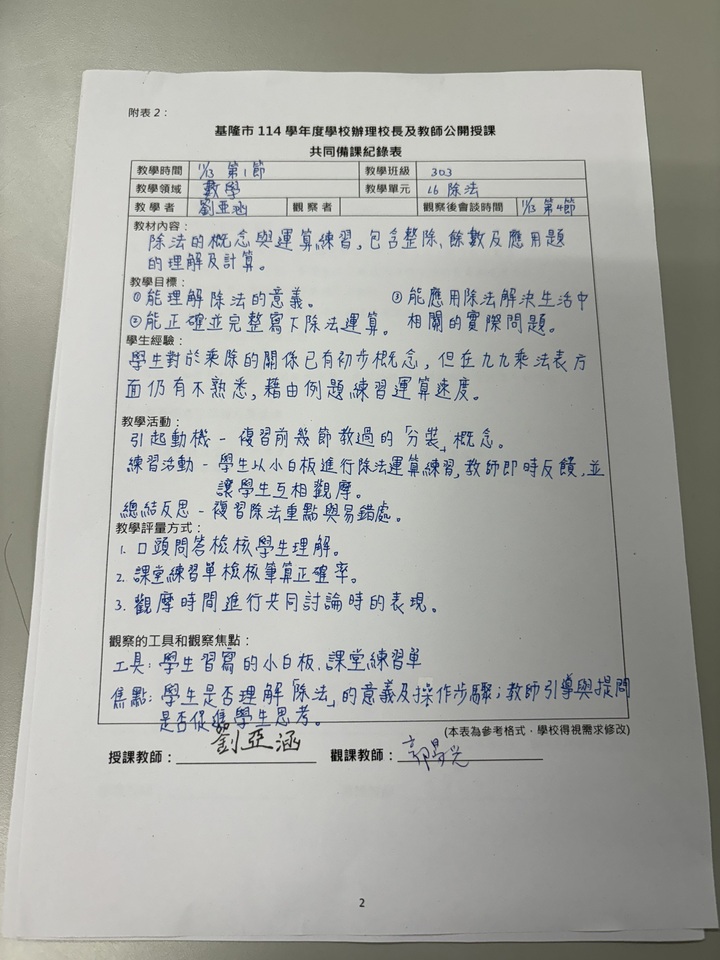 附表 2：
基隆市 114 學年度學校辦理校長及教師公開授課
共同備課紀錄表
教學時間 11/13 第1節 教學班級 303
教學領域 數學 教學單元 L6 除法
教學者 劉亞涵 觀察者 觀察後會談時間 11/13 第4節
教材內容：
除法的概念與運算練習，包含整除、餘數及應用題
的理解及計算。
教學目標：
①能理解除法的意義。 ③能應用除法解決生活中
②能正確並完整寫下除法運算。 相關的實際問題。
學生經驗：
學生對於乘除的關係已有初步概念，但在九九乘法表方
面仍有不熟悉，藉由例題練習運算速度。
教學活動：
引起動機－複習前幾節教過的「分裝」概念。
練習活動－學生以小白板進行除法運算練習，教師即時反饋，並
讓學生互相觀摩。
總結反思－複習除法重點與易錯處。
教學評量方式：
1. 口頭問答檢核學生理解。
2. 課堂練習單檢核筆算正確率。
3. 觀摩時間進行共同討論時的表現。
觀察的工具和觀察焦點：
工具：學生習寫的小白板、課堂練習單
焦點：學生是否理解「除法」的意義及操作步驟；教師引導與提問
是否促進學生思考。
(本表為參考格式，學校得視需求修改)
授課教師：劉亞涵 觀課教師：
2